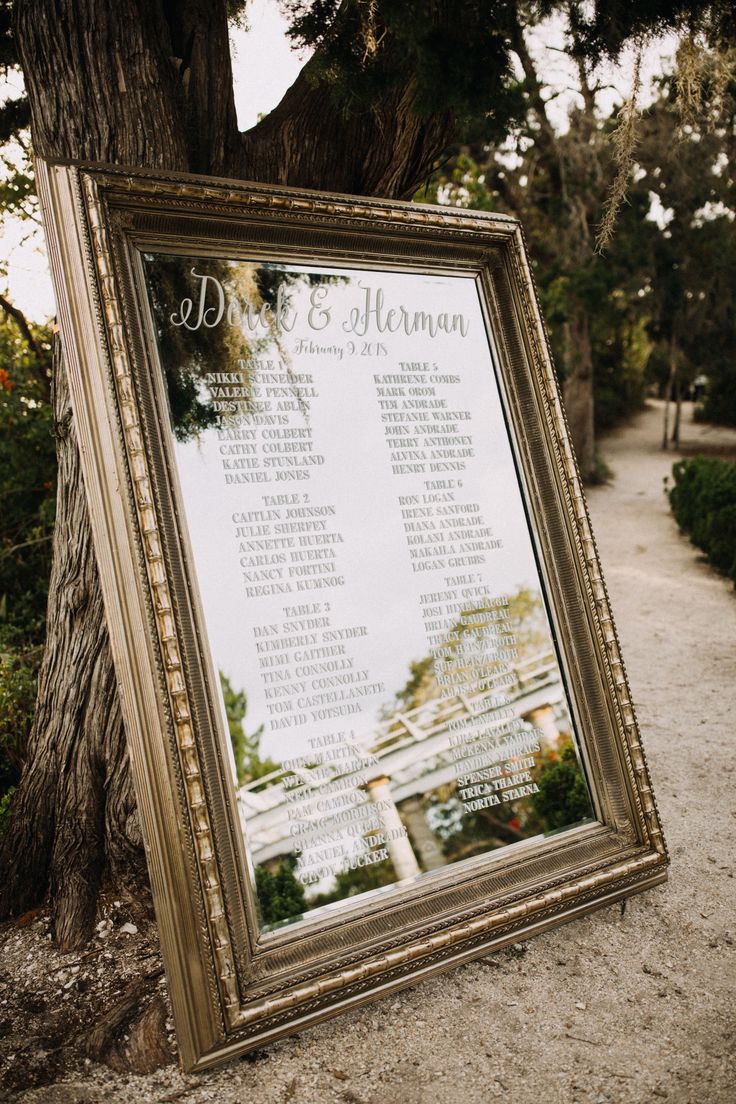 Derek & Herman
February 9, 2018
TABLE 1
NIKKI SCHNEIDER
VALERIE PENNELL
DESTINEE ABLEN
JASON DAVIS
LARRY COLBERT
CATHY COLBERT
KATIE STUNLAND
DANIEL JONES
TABLE 2
CAITLIN JOHNSON
JULIE SHERFEY
ANNETTE HUERTA
CARLOS HUERTA
NANCY FORTINI
REGINA KUMNOG
TABLE 3
DAN SNYDER
KIMBERLY SNYDER
MIMI GAITHER
TINA CONNOLLY
KENNY CONNOLLY
TOM CASTELLANETE
DAVID YOTSUDA
TABLE 4
JOHN MARTIN
WINNIE MARTIN
NEIL CAMRON
PAM CAMRON
CRAIG MORRISON
SIANNA QUEEN
MANUEL AMADOR
CINDY FUCKER
TABLE 5
KATHRENE COMBS
MARK OROM
TIM ANDRADE
STEFANIE WARNER
JOHN ANDRADE
TERRY ANTHONEY
ALVINA ANDRADE
HENRY DENNIS
TABLE 6
RON LOGAN
IRENE SANFORD
DIANA ANDRADE
KOLANI ANDRADE
MAKAILA ANDRADE
LOGAN GRUBBS
TABLE 7
JEREMY QVICK
JOSI HIXENBAUGH
BRIAN GAUDREAU
TRACY GAUDREAU
SUE HEINZROTH
BRIAN O'LEARY
ALISA O'LEARY
TABLE 8
TOM LAZLEY
KIRA LAZLEY
MCKENNA
SPENCER SMITH
TRICA THARPE
NORITA STARNA